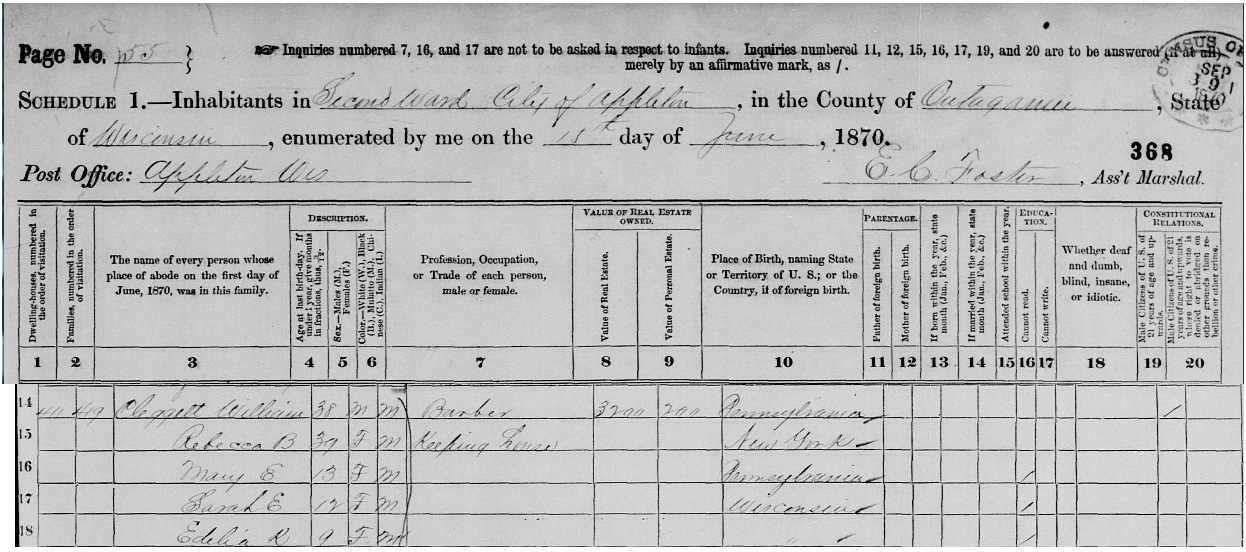 Page No. p55 } ☞ Inquiries numbered 7, 16, and 17 are not to be asked in respect to infants. Inquiries numbered 11, 12, 15, 16, 17, 19, and 20 are to be answered (if at all)
merely by an affirmative mark, as /.
CENSUS OF
SEP
9
1870
SCHEDULE 1.—Inhabitants in Second Ward City of Appleton, in the County of Outagamie, State
of Wisconsin, enumerated by me on the 15th day of June, 1870.
368
Post Office: Appleton Wis E. C. Foster, Ass't Marshal.
Dwelling-houses, numbered in the order of visitation.
Families, numbered in the order of visitation.
The name of every person whose place of abode on the first day of June, 1870, was in this family.
DESCRIPTION.
Age at last birth-day. If under 1 year, give months in fractions, thus,
Sex.—Males (M.), Females (F.)
Color.—White (W.), Black (B.), Mulatto (M.), Chinese (C.), Indian (I.)
Profession, Occupation, or Trade of each person, male or female.
VALUE OF REAL ESTATE OWNED.
Value of Real Estate.
Value of Personal Estate.
Place of Birth, naming State or Territory of U. S.; or the Country, if of foreign birth.
PARENTAGE.
Father of foreign birth.
Mother of foreign birth.
If born within the year, state month (Jan., Feb., &c.)
If married within the year, state month (Jan., Feb., &c.)
Attended school within the year.
EDUCATION.
Cannot read.
Cannot write.
Whether deaf and dumb, blind, insane, or idiotic.
CONSTITUTIONAL RELATIONS.
Male Citizens of U. S. of 21 years of age and upwards.
Male Citizens of U. S. of 21 years of age and upwards, where right to vote is denied or abridged on other grounds than rebellion or other crime.
1 2 3 4 5 6 7 8 9 10 11 12 13 14 15 16 17 18 19 20
14 411 419 Cleggett William 38 M M Barber 3200 200 Pennsylvania /
15 Rebecca B 39 F M Keeping house New York
16 Mary E 13 F M Pennsylvania /
17 Sarah E 12 F M Wisconsin /
18 Edelia K 9 F M " " /